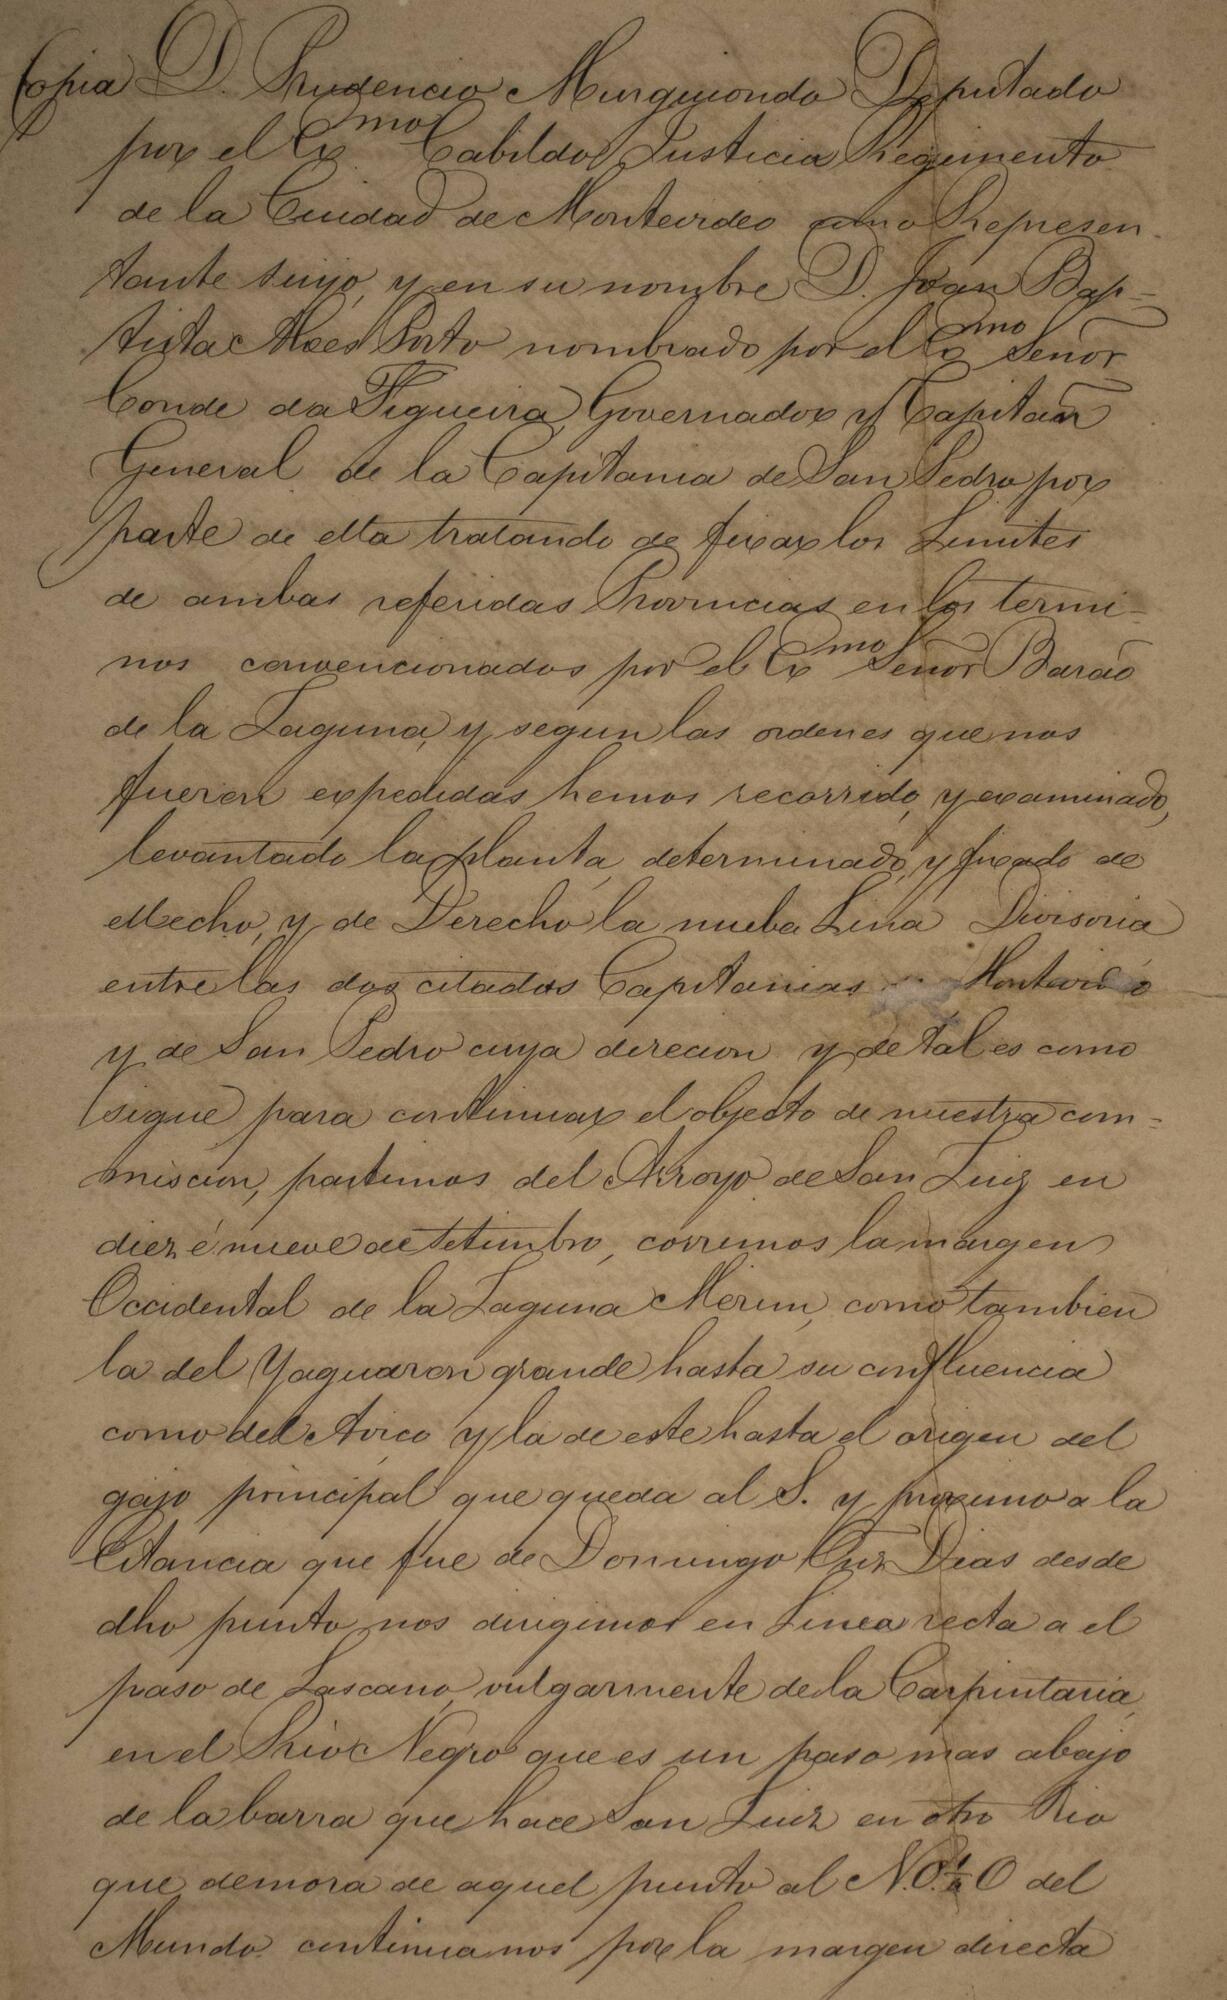 Copia D. Prudencio Murguiondo Deputado
por el Ex.mo Cabildo, Justicia Regimento
de la Ciudad de Montevideo como Represen-
tante suyo, y en su nombre D. Joan Bap-
tista Alves Porto nombrado por el Ex.mo Señor
Conde da Figueira, Governador y Capitan
General de la Capitania de San Pedro por
parte de ella tratando de fixar los Limites
de ambas referidas Provincias en los termi-
nos convencionados por el Ex.mo Señor Barão
de la Laguna, y segun las ordenes que nos
fueron expedidas hemos recorrido, y examinado,
levantado la planta, determinado, y fixado de
Hecho, y de Derecho la nueba Lina Divisoria
entre las dos citados Capitanias Montevideo
y de San Pedro cuya direcion y detal es como
sigue para continuar el objecto de nuestra com-
mision, partimos del Arroyo de San Luiz en
diez é nueve de Setimbro, corremos la margen
Occidental de la Laguna Merim, como tambien
la del Yaguaron grande hasta su confluencia
como del Arico y la de este hasta el origen del
gajo principal que queda al S. y proximo a la
Estancia que fue de Domingo Dias desde
dho punto nos dirigimos en Linea recta a el
paso de Lascano, vulgarmente de la Carpintaria,
en el Rio Negro que es un paso mas abajo
de la barra que hace San Luiz en otro Rio
que demora de aquel punto al N.O.¼ O del
Mundo continuanos por la margen directa